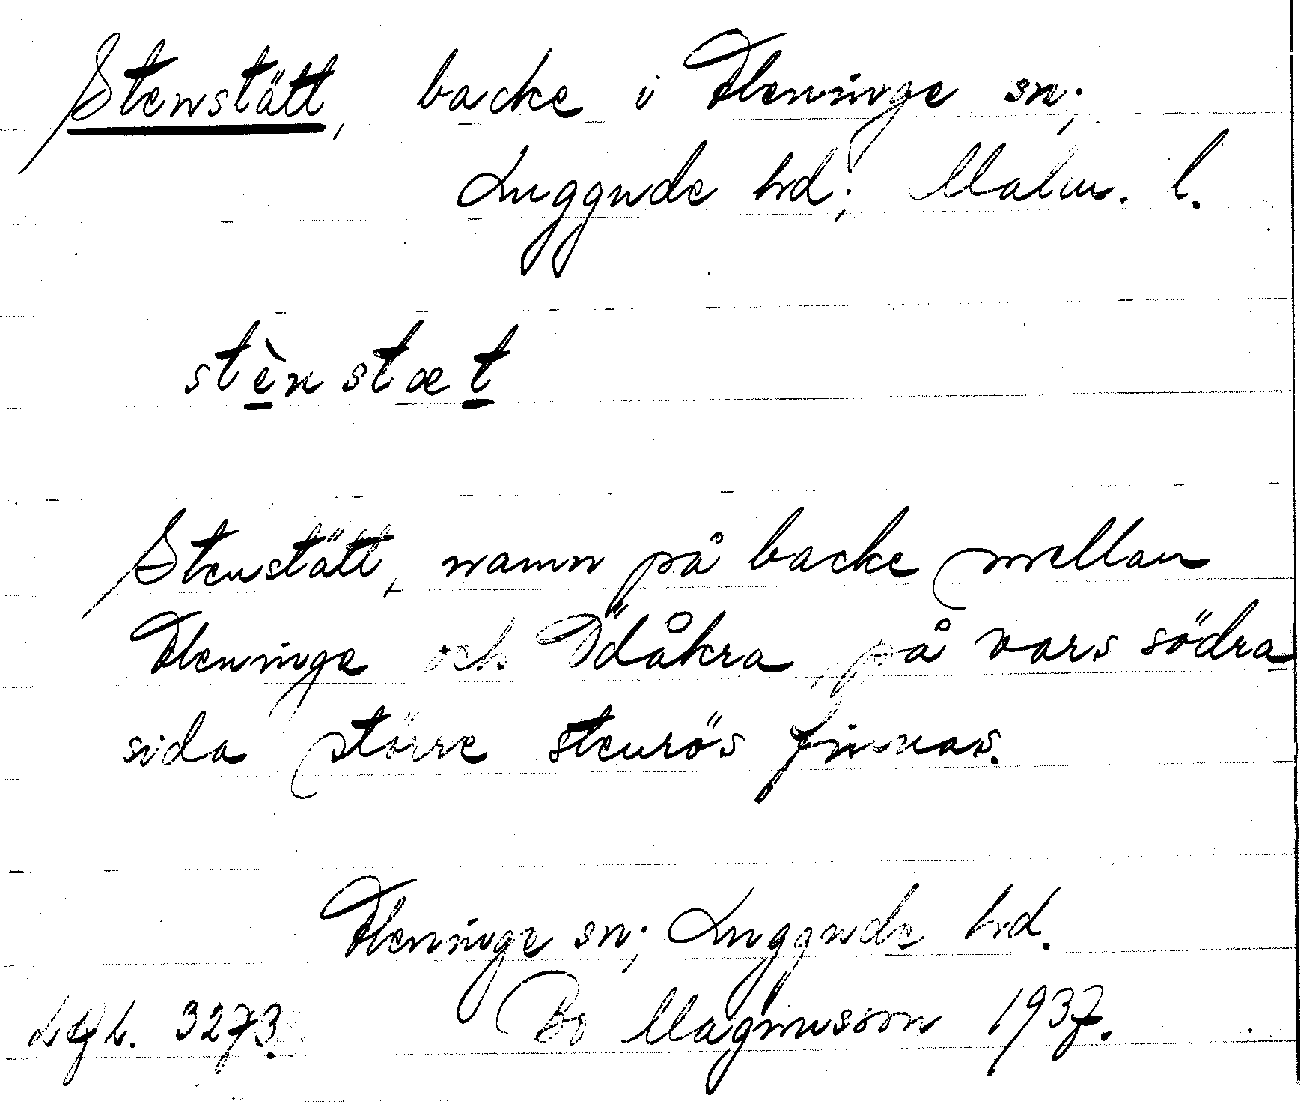 Stenstätt, backe i Fleninge sn;
Luggude hd; Malm. l.
stènstæt
Stenstätt, namn på backe mellan
Fleninge och Ödåkra, på vars södra
sida större stenrös finnas.
Fleninge sn; Luggude hd.
3273. Bo Magnusson 1937.